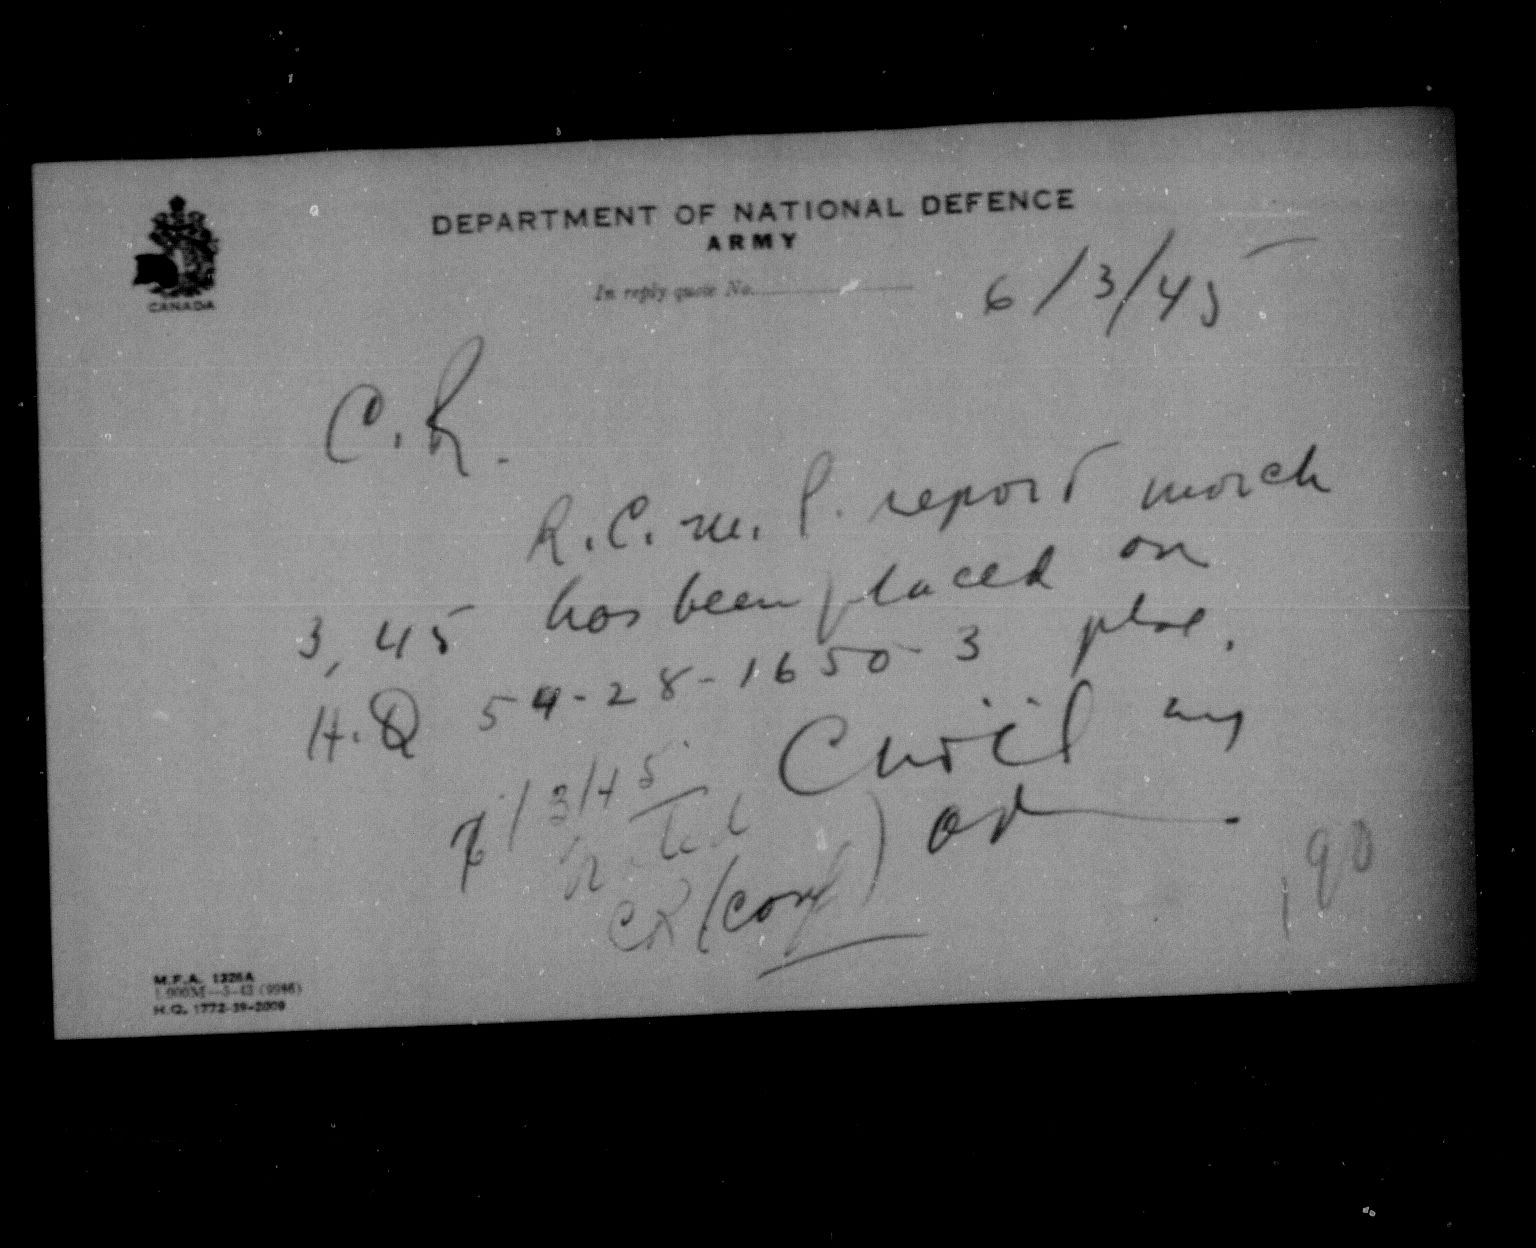 DEPARTMENT OF NATIONAL DEFENCE
ARMY
CANADA
In reply quote No.
6/3/45
C.R.
R.C.M.P. report March
3, 45 has been placed on
H.Q 54-28-1650-3 plse.
7/3/45
Noted
CR (conf)
90
M.F.A. 1326A
H.Q. 1772-39-2009